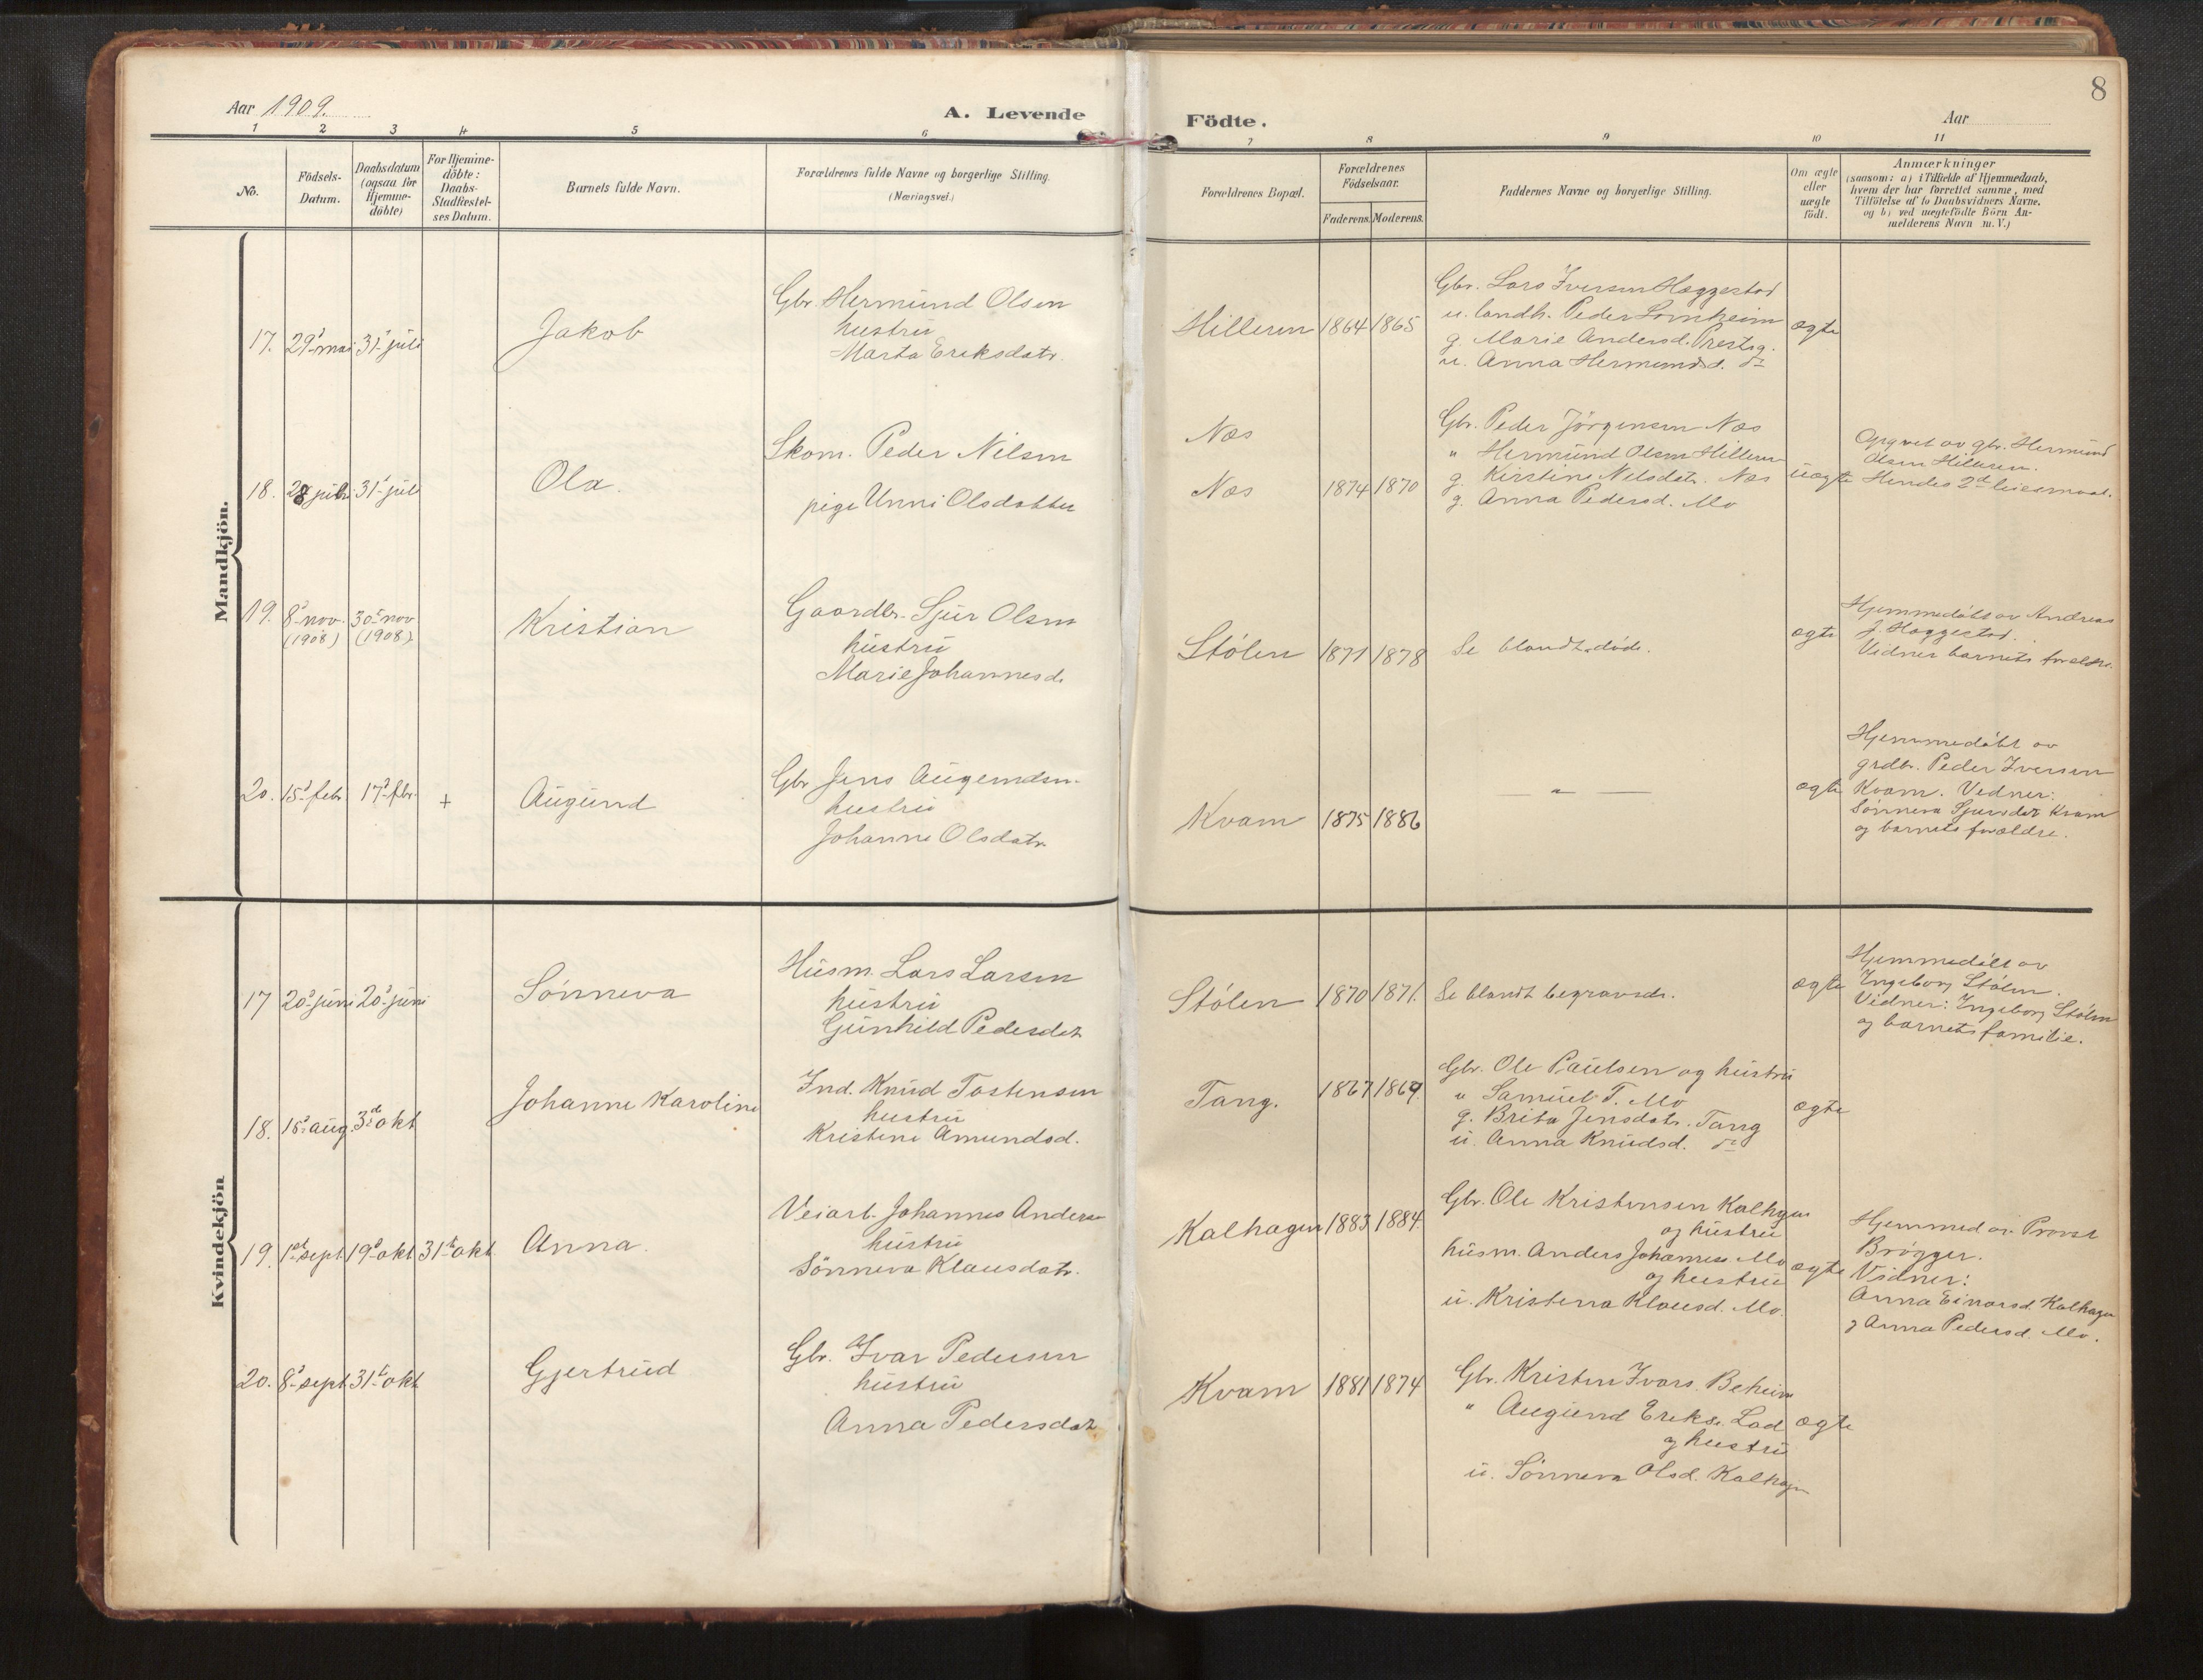 8
Aar 1909.
A. Levende
Födte.
Aar
1 2 3 4 5 6 7 8 9 10 11
No.
Födsels-
Datum.
Daabsdatum
(ogsaa for
Hjemme-
döbte)
For Hjemme-
döbte:
Daabs-
Stadfæstel-
ses Datum.
Barnets fulde Navn.
Forældrenes fulde Navne og borgerlige Stilling.
(Næringsvei.)
Forældrenes Bopæl.
Forældrenes
Födselsaar.
Faderens. Moderens.
Faddernes Navne og borgerlige Stilling.
Om ægte
eller
uægte
födt.
Anmærkninger
(saasom: a) i Tilfælde af Hjemmedaab,
hvem der har forrettet samme, med
Tilföielse af to Daabsvidners Navne.
og b) ved uegtefödte Börn An-
melderens Navn m. V.)
Mandkjön.
17. 29d mai 31t juli
Jakob
Gbr. Hermund Olsen
hustru
Marta Eriksdatr.
Hilleren 1864 1865
Gbr. Lars Iversen Hæggestad
u. landh. Peder Lomheim
g. Marie Andersd. Prestg.
u. Anna Hermundsd. do
ægte
18. 28 juli 31t juli
Ola.
Skom. Peder Nilsen
pige Unni Olsdatter
Næs
Næs 1874 1870
Gbr. Peder Jörgensen Næs
" Hermund Olsen Hilleren
g. Kirstine Nilsdatr. Næs
g. Anna Pedersd. Mo
uægte
Opgivet av gbr. Hermund
Olsen Hilleren.
Hendes 2d leiermaal.
19. 8d nov. 30t nov
(1908) (1908)
Kristian
Gaardbr. Sjur Olsen
hustru
Marie Johannesd.
Stölen 1871 1878
Se blandt döde.
ægte
Hjemmedöbt av Andreas
J. Hæggestad.
Vidner barnets forældre.
20. 15d febr 17d fbr. +
Augund
Gbr Jens Augundsen
hustru
Johanne Olsdatr
Kvam 1875 1886
— " —
ægte
Hjemmedöbt av
grdbr. Peder Iversen
Kvam. Vidner:
Sönneva Sjursdat Kvam
og barnets forældre.
Kvindekjön
17 20d juni 20d juni
Sönneva
Husm. Lars Larsen
hustru
Gunhild Pedersdat
Stölen 1870 1871.
Se blandt begravede.
ægte
Hjemmedöbt av
Ingeborg Stölen.
Vidner: Ingeborg Stölen
og barnets familie.
18. 15d aug. 3d okt
Johanne Karoline
Ind. Knud Tostensen
hustru
Kristine Amundsd.
Tang. 1867 1869
Gbr. Ole Paulsen og hustru
" Samuel T. Mo
g. Brita Jensdatr. Tang
u. Anna Knudsd. do
ægte
19. 1st sept. 19d okt 31t okt
Anna.
Veiarb. Johannes Anders
hustru
Sönneva Klausdatr.
Kalhagen 1883 1884.
Gbr. Ole Kristensen Kalhgen
og hustru
husm. Anders Johanness. Mo
og hustru
u. Kristena Klausd. Mo.
ægte
Hjemmed av. Provst
Brögger.
Vidner:
Anna Einarsd. Kalhagen
og Anna Pedersd. Mo.
20. 8d sept 31t okt
Gjertrud
Gbr. Ivar Pedersen
hustru
Anna Pedersdat
Kvam 1881 1874
Gbr. Kristen Ivars. Beheim
" Augund Eriks. Lad
og hustru
u. Sönneva Olsd. Kalhagen
ægte